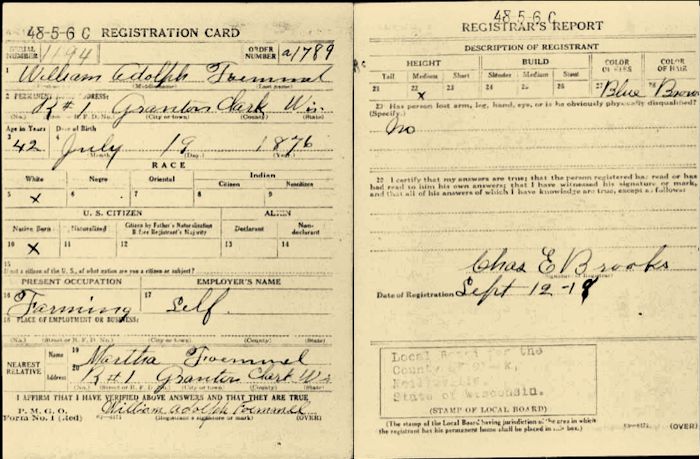 48-5-6 C REGISTRATION CARD
SERIAL NUMBER 1194 ORDER NUMBER a1789
1 William Adolph Foemmel
(First name) (Middle name) (Last name)
2 PERMANENT HOME ADDRESS:
R#1 Granton Clark Wis.
(No.) (Street or R. F. D. No.) (City or town) (County) (State)
Age in Years Date of Birth
3 42 4 July 19 1876
(Month.) (Day.) (Year.)
RACE
White Negro Oriental Indian
Citizen Noncitizen
5 x 6 7 8 9
U. S. CITIZEN ALIEN
Native Born Naturalized Citizen by Father's Naturalization Before Registrant's Majority Declarant Non-declarant
10 x 11 12 13 14
15
If not a citizen of the U. S., of what nation are you a citizen or subject?
PRESENT OCCUPATION EMPLOYER'S NAME
16 Farming 17 Self
18 PLACE OF EMPLOYMENT OR BUSINESS:
(No.) (Street or R. F. D. No.) (City or town) (County) (State)
NEAREST RELATIVE
Name 19 Martha Foemmel
Address 20 R#1 Granton Clark Wis
(No.) (Street or R. F. D. No.) (City or town) (County) (State)
I AFFIRM THAT I HAVE VERIFIED ABOVE ANSWERS AND THAT THEY ARE TRUE
P. M. G. O.
Form No. 1 (Red) William Adolph Foemmel
(Registrant's signature or mark) (OVER)
48-5-6 C
REGISTRAR'S REPORT
DESCRIPTION OF REGISTRANT
HEIGHT BUILD COLOR OF EYES COLOR OF HAIR
Tall Medium Short Slender Medium Stout
21 22 x 23 24 25 26 27 Blue 28 Brown
29 Has person lost arm, leg, hand, eye, or is he obviously physically disqualified?
(Specify.)
No
30 I certify that my answers are true; that the person registered has read or has
had read to him his own answers; that I have witnessed his signature or mark
and that all of his answers of which I have knowledge are true, except as follows:
Chas E Brooks
(Signature of Registrar)
Date of Registration Sept 12-18
Local Board for the
County of
Neillsville,
State of Wisconsin.
(STAMP OF LOCAL BOARD)
(The stamp of the Local Board having jurisdiction of the area in which
the registrant has his permanent home shall be placed in this box.)
(OVER)